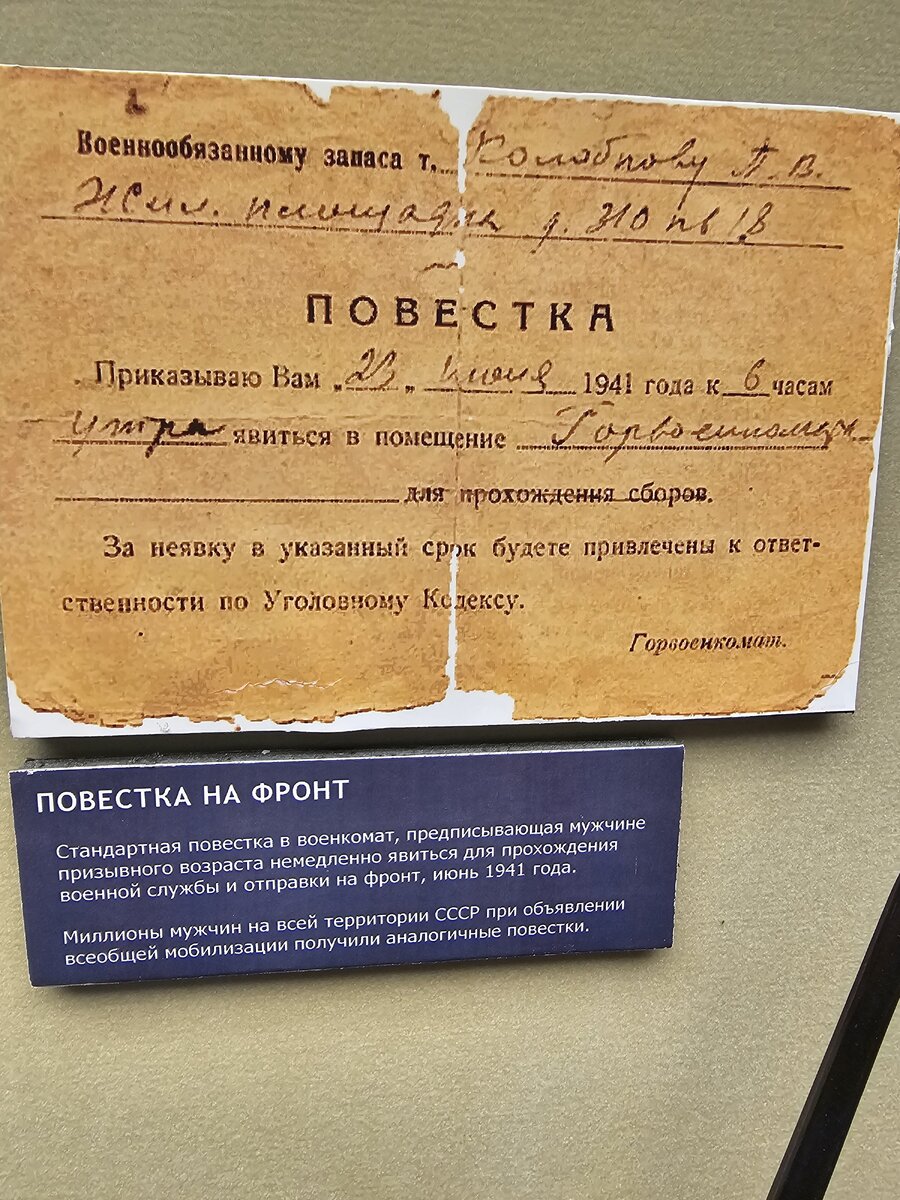 Военнообязанному запаса т. П. В.
Жил. площадка д. 310 кв 18
ПОВЕСТКА
Приказываю Вам „23„ июня 1941 года к 6 часам
утра явиться в помещение Горвоенкомата
для прохождения сборов.
За неявку в указанный срок будете привлечены к ответ-
ственности по Уголовному Кодексу.
Горвоенкомат.
ПОВЕСТКА НА ФРОНТ
Стандартная повестка в военкомат, предписывающая мужчине
призывного возраста немедленно явиться для прохождения
военной службы и отправки на фронт, июнь 1941 года.
Миллионы мужчин на всей территории СССР при объявлении
всеобщей мобилизации получили аналогичные повестки.